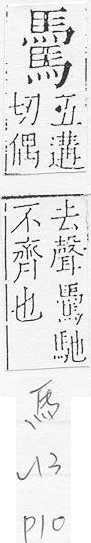 五遘
切偶
去聲
馳
不齊也
馬
13
P10